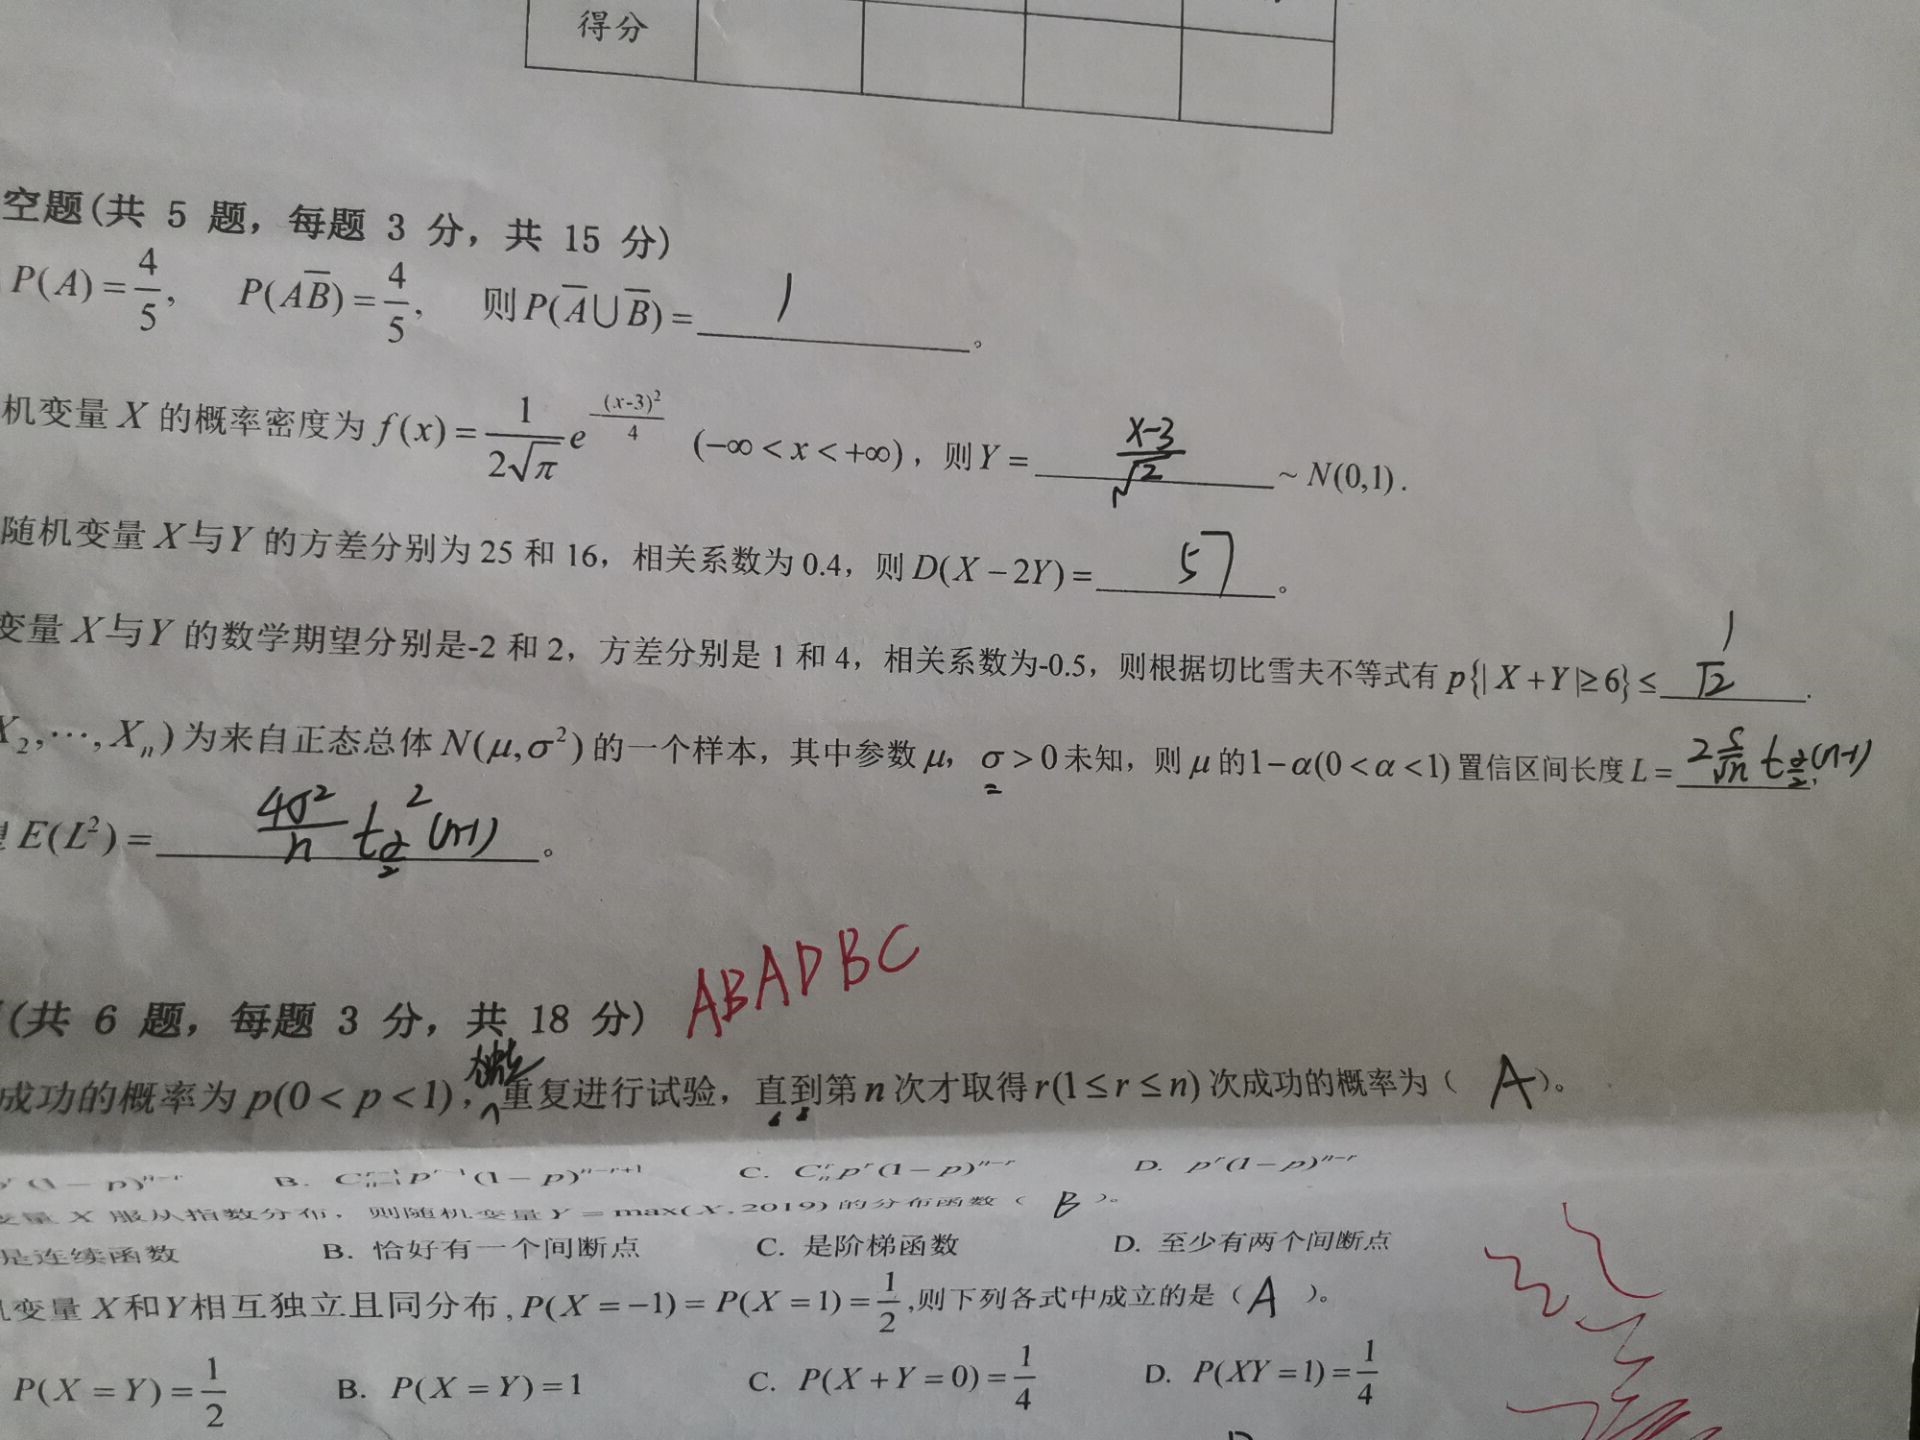 得分
空题(共 5 题，每题 3 分，共 15 分)
P(A)=4/5， P(AB̅)=4/5， 则P(A̅∪B̅)= 1 。
机变量 X 的概率密度为 f(x)=1/(2√π) e^{-(x-3)²/4} (-∞<x<+∞)，则Y= (x-3)/√2 ~ N(0,1).
随机变量 X与Y 的方差分别为 25 和 16，相关系数为 0.4，则 D(X-2Y)= 57 。
变量 X与Y 的数学期望分别是-2 和 2，方差分别是 1 和 4，相关系数为-0.5，则根据切比雪夫不等式有 p{|X+Y|≥6}≤ 1/12 .
X₂,⋯,Xₙ)为来自正态总体 N(μ,σ²)的一个样本，其中参数 μ，σ>0未知，则 μ的1-α(0<α<1)置信区间长度 L= 2 S/√n t_{α/2}(n-1)
E(L²)= 4σ²/n t²_{α/2}(n-1) 。
ABADBC
(共 6 题，每题 3 分，共 18 分)
成功的概率为 p(0<p<1)，重复进行试验，直到第 n 次才取得 r(1≤r≤n) 次成功的概率为（ A ）。
(1-p)^{n-r} B. C_{n-1}^{r-1}p^{r-1}(1-p)^{n-r+1} C. C_n^r p^r(1-p)^{n-r} D. p^r(1-p)^{n-r}
变量 X 服从指数分布，则随机变量 Y=max(X,2019) 的分布函数（ B ）。
是连续函数 B. 恰好有一个间断点 C. 是阶梯函数 D. 至少有两个间断点
变量 X和Y相互独立且同分布,P(X=-1)=P(X=1)=1/2,则下列各式中成立的是（ A ）。
P(X=Y)=1/2 B. P(X=Y)=1 C. P(X+Y=0)=1/4 D. P(XY=1)=1/4